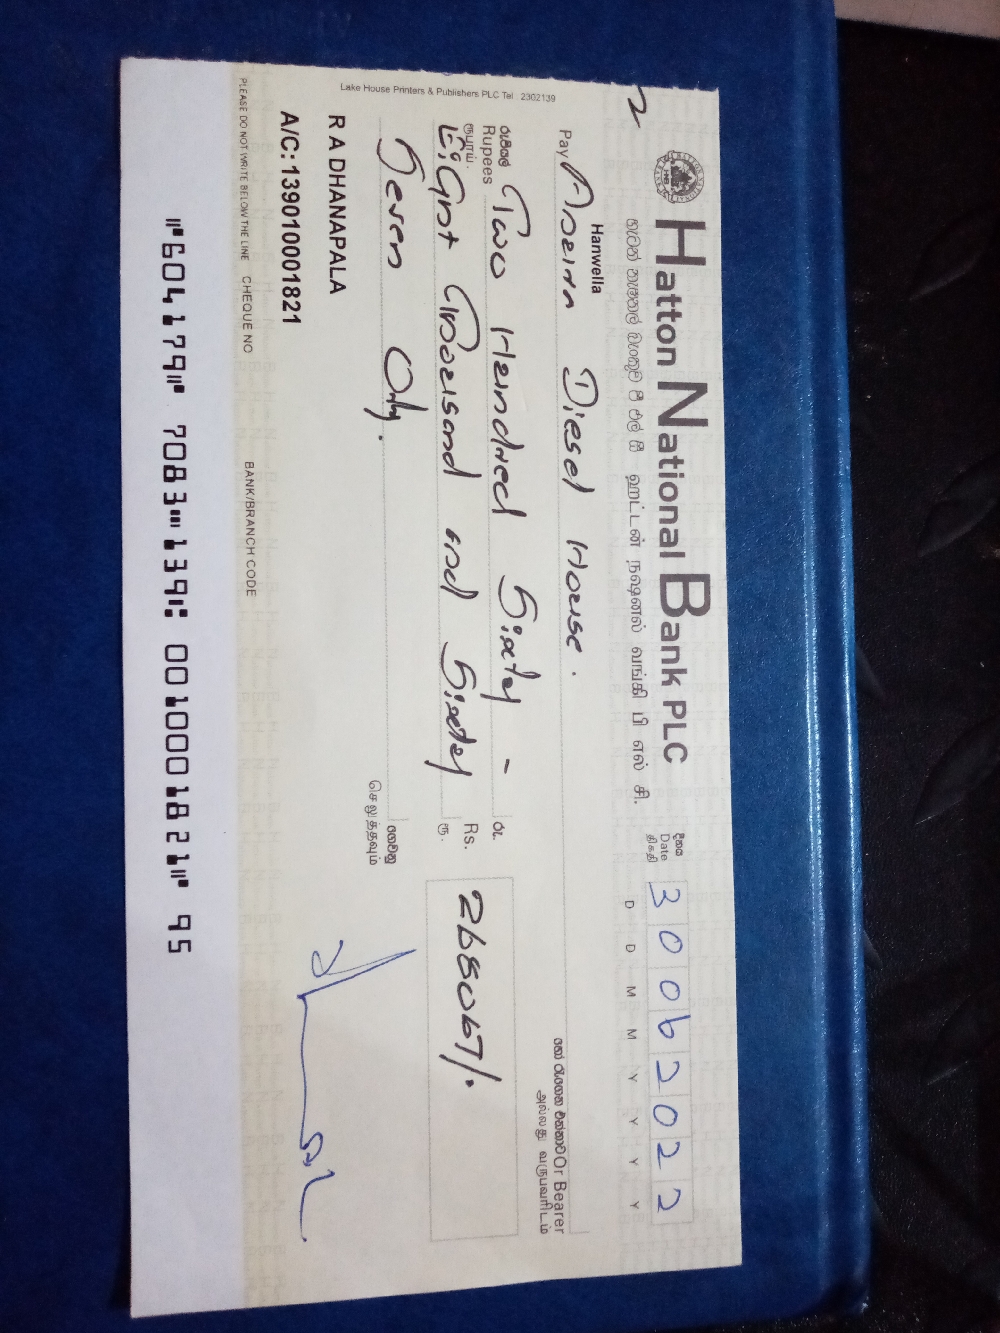 Hatton National Bank PLC
හැටන් නැෂනල් බැංකුව පී එල් සී ஹட்டன் நஷனல் வங்கி பி எல் சி.
දිනය
Date
திகதி
3 0 0 6 2 0 2 2
D D M M Y Y Y Y
Hanwella
Pay Diesel House.
හෝ රැගෙන එන්නාට Or Bearer
அல்லது வருபவரிடம்
රුපියල්
Rupees
ரூபாய்
Two Hundred Sixty -
Eight Thousand and Sixty
Seven Only.
ගෙවනු
செலுத்தவும்
රු.
Rs.
ரூ.
268067/.
R A DHANAPALA
A/C:139010001821
PLEASE DO NOT WRITE BELOW THE LINE CHEQUE NO BANK/BRANCH CODE
⑈604179⑈ 7083⑉139⑆ 0010001821⑈ 95
Lake House Printers & Publishers PLC Tel : 2302139